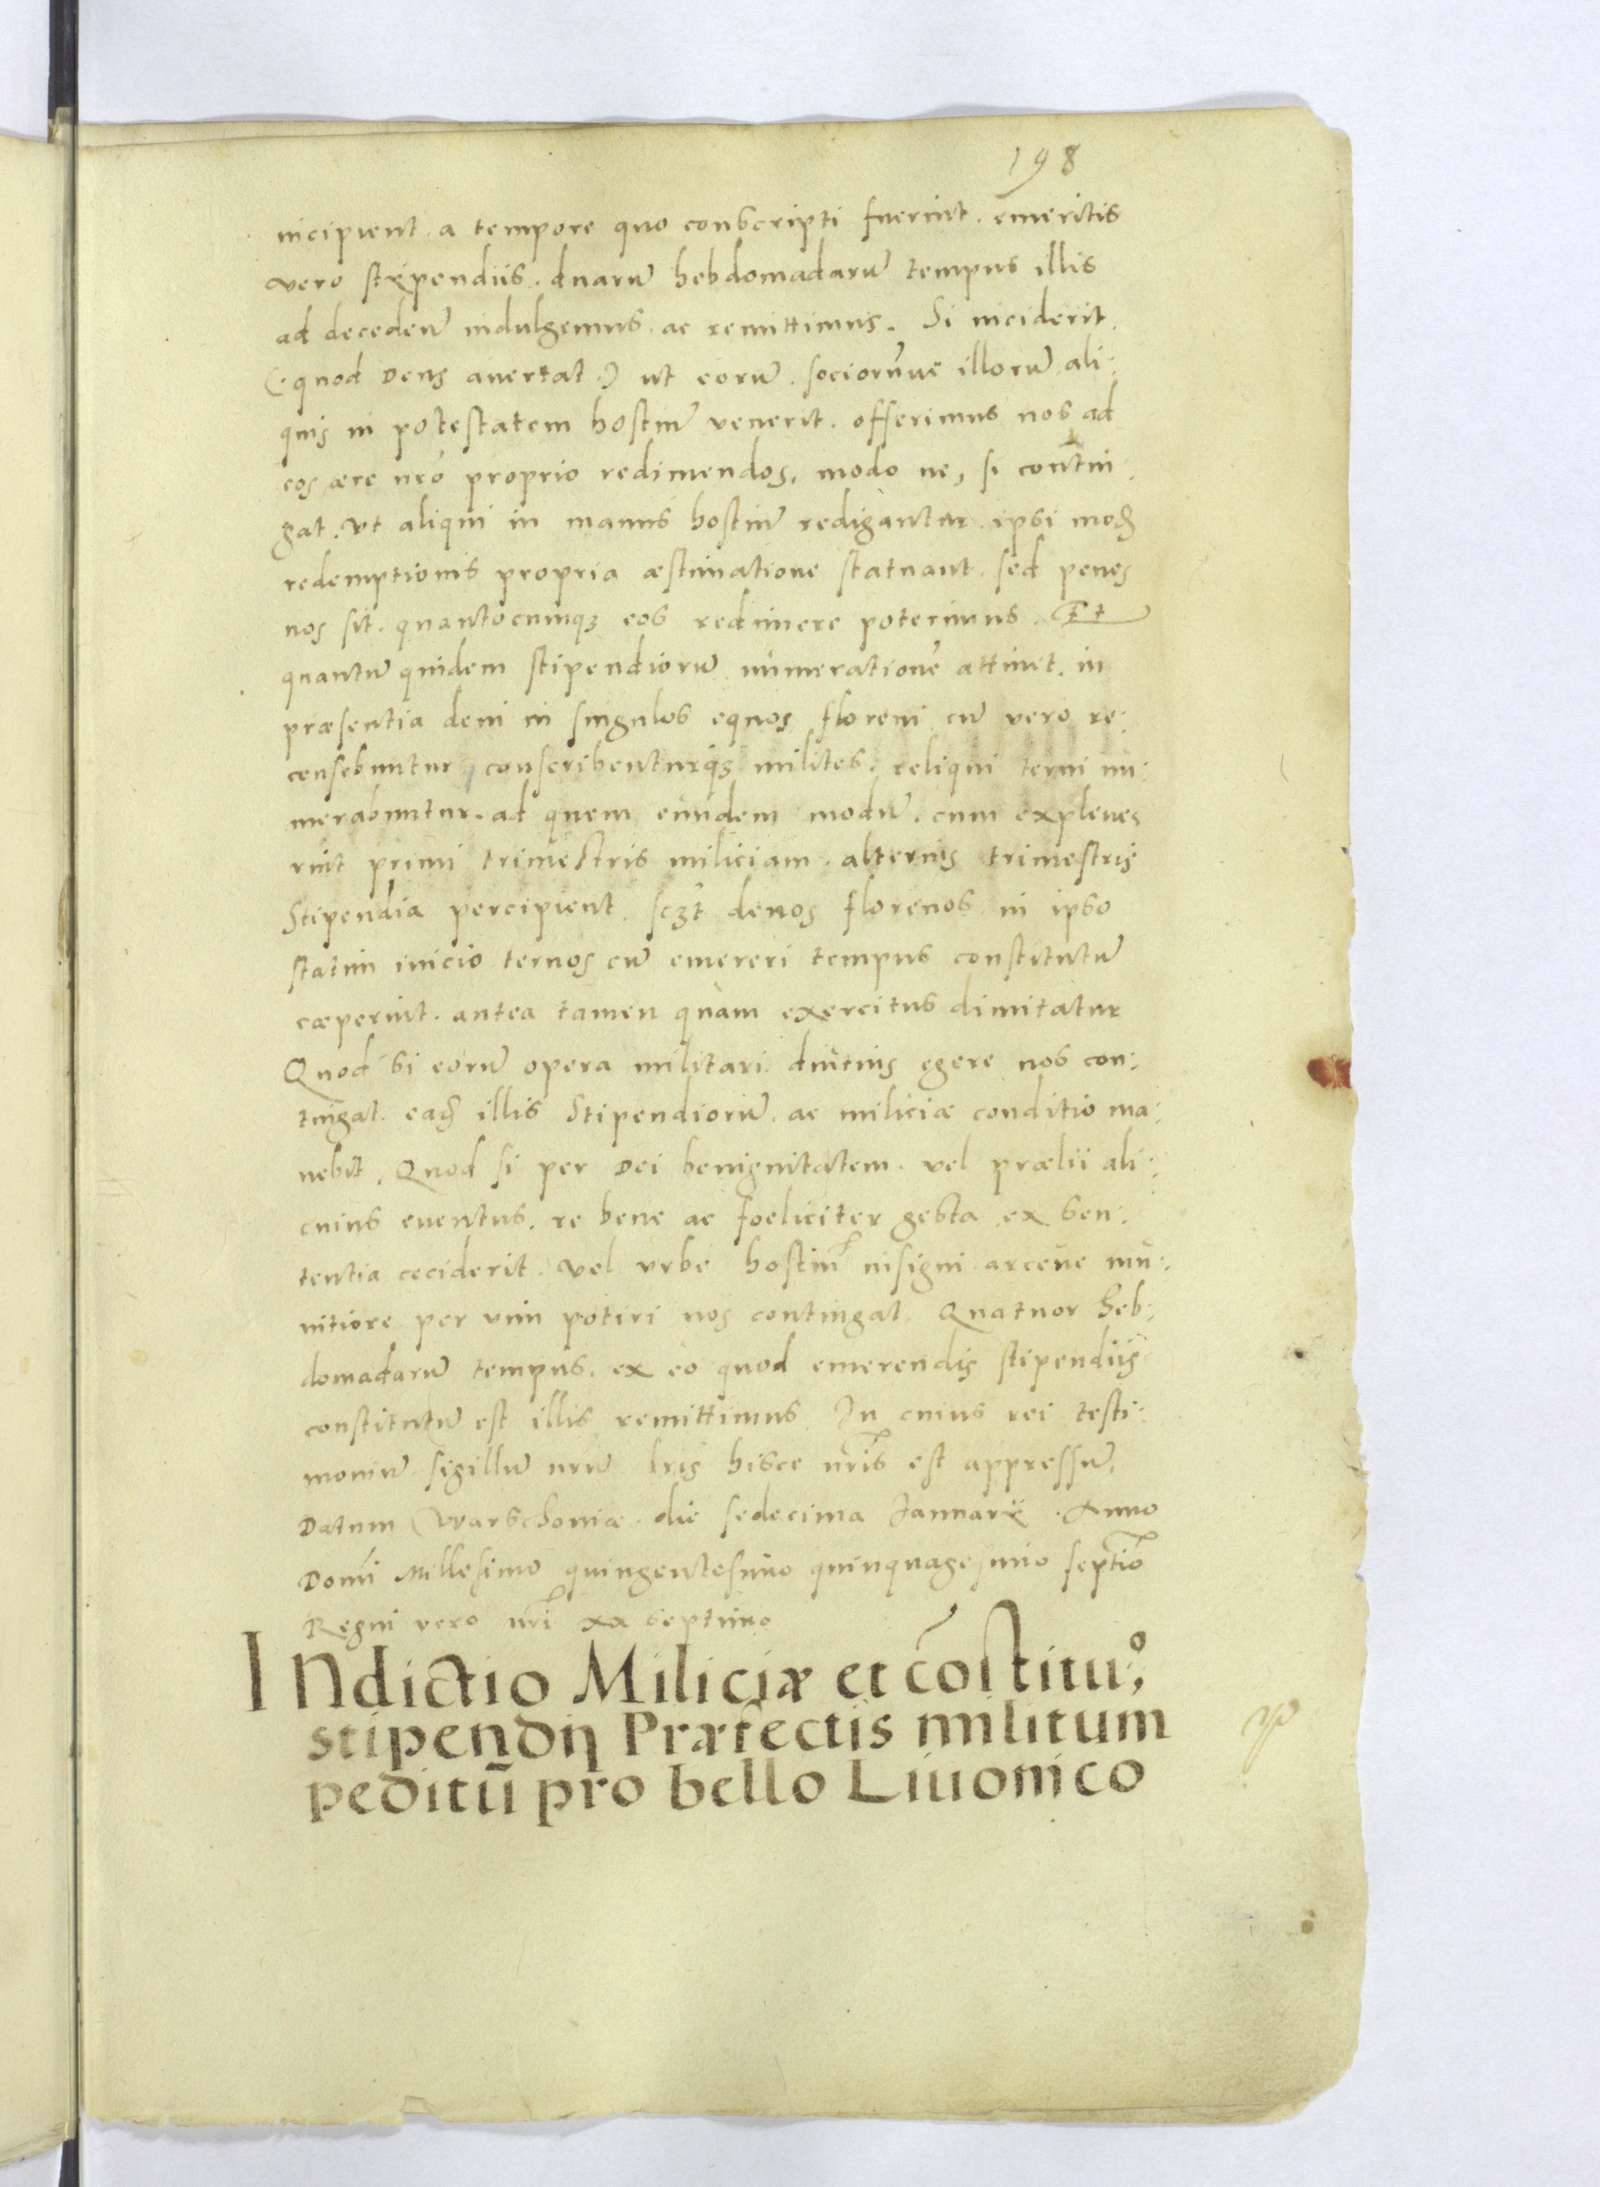 198
incipient. a tempore quo conscripti fuerint. emeritis
vero stipendiis. duarū hebdomadarū tempus illis
ad decedenū indulgemus. ac remittimus. Si inciderit.
(: quod Deus avertat :) ut eorū. sociorūve illorū ali:
quis in potestatem hostiū venerit. offerimus nos ad
eos ære nrō proprio redimendos, modo ne, si contin:
gat. vt aliqui in manus hostiū redigantur. ipsi modū
redemptionis propria æstimatione statuant. sed penes
nos sit. quantocumqꝫ eos redimere poterimus. Et
quantū quidem stipendiorū numerationē attinet. in
præsentia deni in singulos equos floreni cū vero re:
censebuntur, conscribenturqꝫ milites. reliqui terni nu:
merabuntur. ad quem eundem modū. cum expleve
rint primi trimestris miliciam. alterius trimestris
Stipendia percipient. scꝫt denos florenos in ipso
statim inicio ternos cū emereri tempus constitutū
cæperint. antea tamen quam exercitus dimitatur
Quod si eorū opera militari diutius egere nos con:
tingat. eadē illis Stipendiorū. ac miliciæ conditio ma:
nebit. Quod si per Dei benignitatem. vel prælii ali:
cuius eventus. re bene ac foeliciter gesta ex sen:
tentia ceciderit. vel vrbe hostiū insigni arceve mu:
nitiore per vim potiri nos contingat. Quatuor heb:
domadarū tempus. ex eo quod emerendis stipendiis
constitutū est illis remittimus. In cuius rei testi:
moniū sigillū nrūm lris hisce nris est appressū.
Datum Warschoviæ. die sedecima Januarii. Anno
Domi Millesimo quingentesimo quinquagesimo septio
Regni vero nri xx septimo
INdictio Miliciæ et cōstitu:o
stipendij Præfectis militum
peditū pro bello Livonico